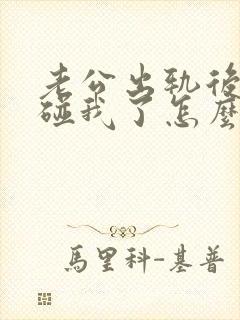 老公出轨後
碰我了怎麼
馬里科-基普